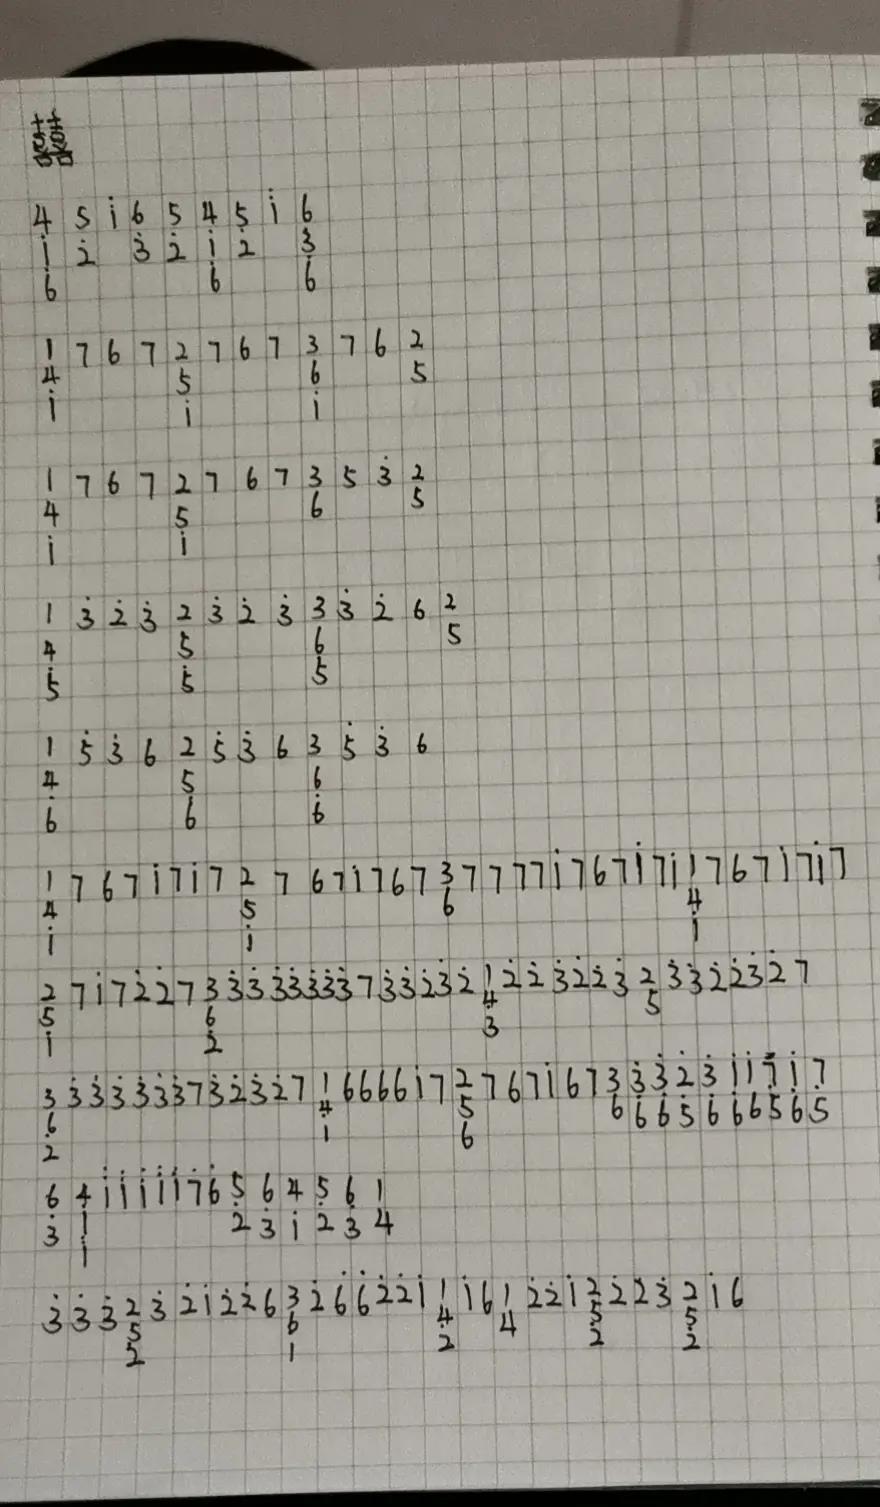 4 5 i 6 5 4 5 i 6
i 2̇ 3̇ 2̇ i 2̇ 3̇
6 6 6
1 7 6 7 2 7 6 7 3 7 6 2
4 5 6 5
i i i
1 7 6 7 2 7 6 7 3 5 3̇ 2
4 5 6 5
i i
1 3̇ 2̇ 3̇ 2 3̇ 2̇ 3̇ 3 3̇ 2̇ 6 2
4 5 6 5
5̇ 5̇ 5̇
1 5̇ 3̇ 6 2 5̇ 3̇ 6 3 5̇ 3̇ 6
4 5 6
6̇ 6 6̇
1 7 6 7 i 7 i 7 2 7 6 7 i 7 6 7 3 7 7 7 7 i 7 6 7 i 7 i 1 7 6 7 i 7 i 7
4 5 6 4
i i i
2 7 i 7 2̇ 2̇ 7 3 3̇ 3̇ 3̇ 3̇ 3̇ 3̇ 7 3̇ 3̇ 2̇ 3̇ 2̇ 1 2̇ 2̇ 3̇ 2̇ 2̇ 3̇ 2 3̇ 3̇ 2̇ 2̇ 3̇ 2̇ 7
5 6 4 5
i 2̇ 3
3 3̇ 3̇ 3̇ 3̇ 3̇ 7 3̇ 2̇ 3̇ 2̇ 7 1 6 6 6 6 i 7 2 7 6 7 i 6 7 3 3̇ 3̇ 2̇ 3̇ i i 7̇ i 7
6 4 5 6 6̇ 6̇ 5̇ 6̇ 6̇ 6 5 6 5̇
2 1 6
6 4 i i i i i 7 6 5 6 4 5 6 1
3̇ 1 2̇ 3̇ i 2̇ 3̇ 4
1
3̇ 3̇ 3̇ 2 3̇ 2̇ i 2̇ 2̇ 6 3 2̇ 6̇ 6̇ 2̇ 2̇ i 1 i 6 1 2̇ 2̇ i 2 2̇ 2̇ 3̇ 2 i 6
5 6 4 4 5 5
2 1 2 2 2